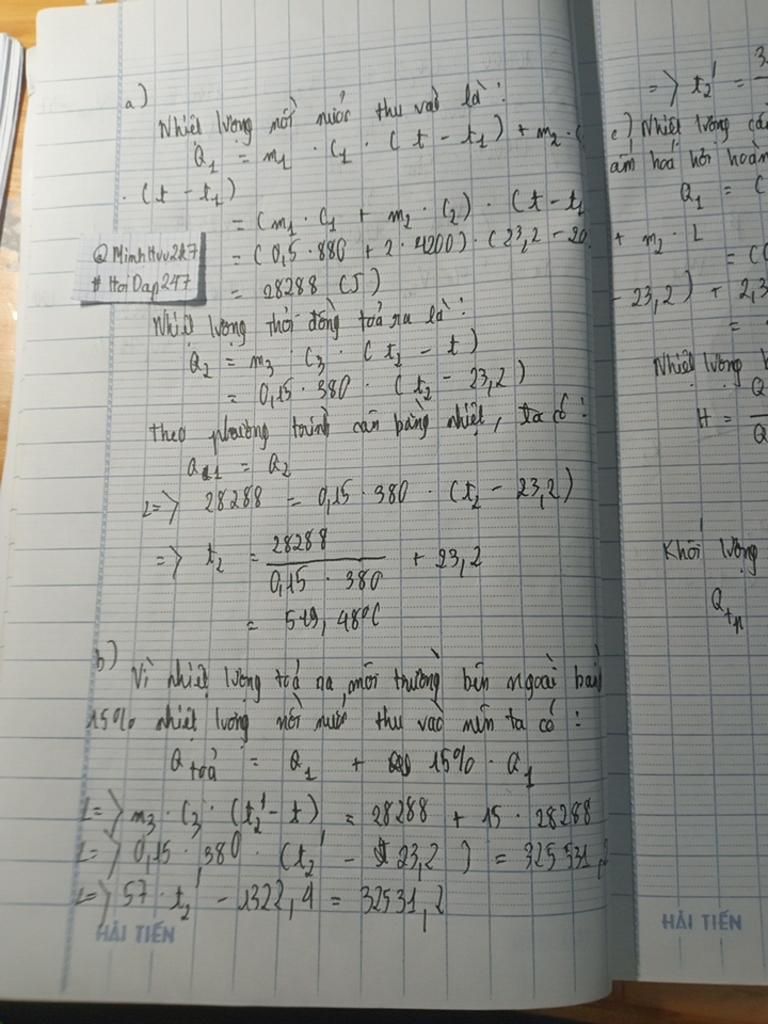 a)
Nhiệt lượng nồi nước thu vào là:
Q1 = m1 . C1 . (t - t1) + m2 . C
. (t - t1)
= (m1 . C1 + m2 . C2) . (t - t1
= (0,5 . 880 + 2 . 4200) . (23,2 - 20
= 28288 (J)
@MinhHuu247
#HoiDap247
Nhiệt lượng thỏi đồng toả ra là:
Q2 = m3 . C3 . (t2 - t)
= 0,15 . 380 . (t2 - 23,2)
Theo phương trình cân bằng nhiệt, ta có:
Q1 = Q2
<=> 28288 = 0,15 . 380 . (t2 - 23,2)
=> t2 = 28288 / 0,15 . 380 + 23,2
= 519,48°C
b) Vì nhiệt lượng toả ra môi trường bên ngoài bằng
15% nhiệt lượng nồi nước thu vào nên ta có:
Qtoả = Q1 + 15% . Q1
<=> m3 . C3 . (t2' - t) = 28288 + 15 . 28288
<=> 0,15 . 380 . (t2' - 23,2) = 325531,2
<=> 57 . t2' - 1322,4 = 32531,2
HẢI TIẾN
=> t2' = 3
c) Nhiệt lượng cầ
ấm hoá hơi hoàn
Q1 = (
+ m2 . L
= (0
- 23,2) + 2,3
=
Nhiệt lượng
H = Q / Q
Khối lượng
Qtp
HẢI TIẾN